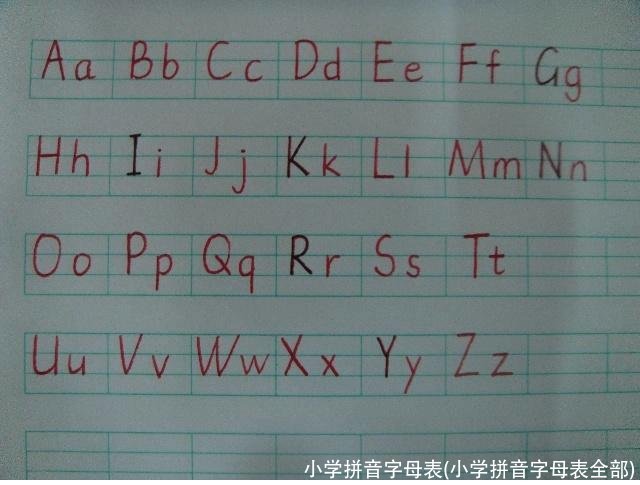 Aa Bb Cc Dd Ee Ff Gg
Hh Ii Jj Kk Ll Mm Nn
Oo Pp Qq Rr Ss Tt
Uu Vv Ww Xx Yy Zz
小学拼音字母表(小学拼音字母表全部)